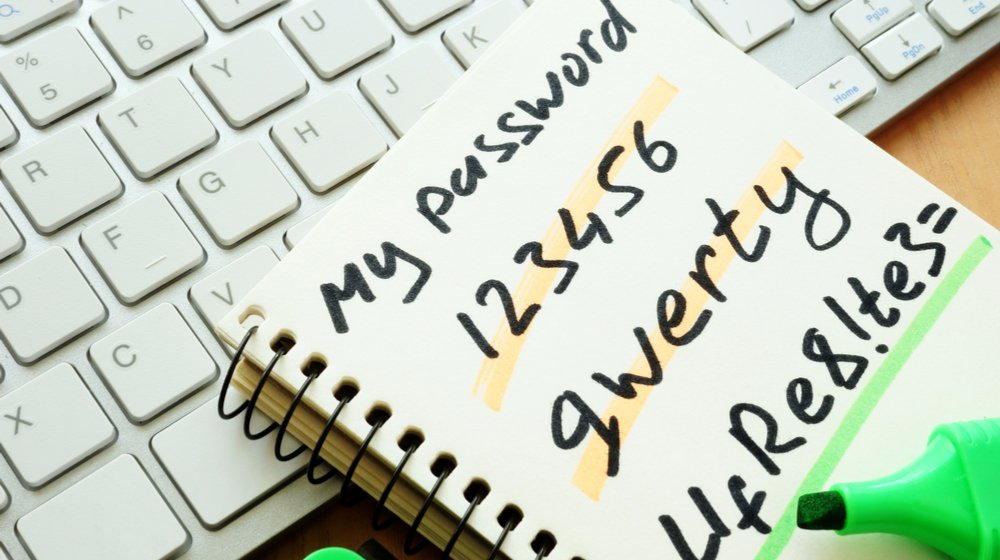 My password
123456
qwerty
Re8!te3=
%
5
^
6
Y
U
K
J
T
H
R
G
F
D
V
C
X
PgUp
PgDn
End
Home